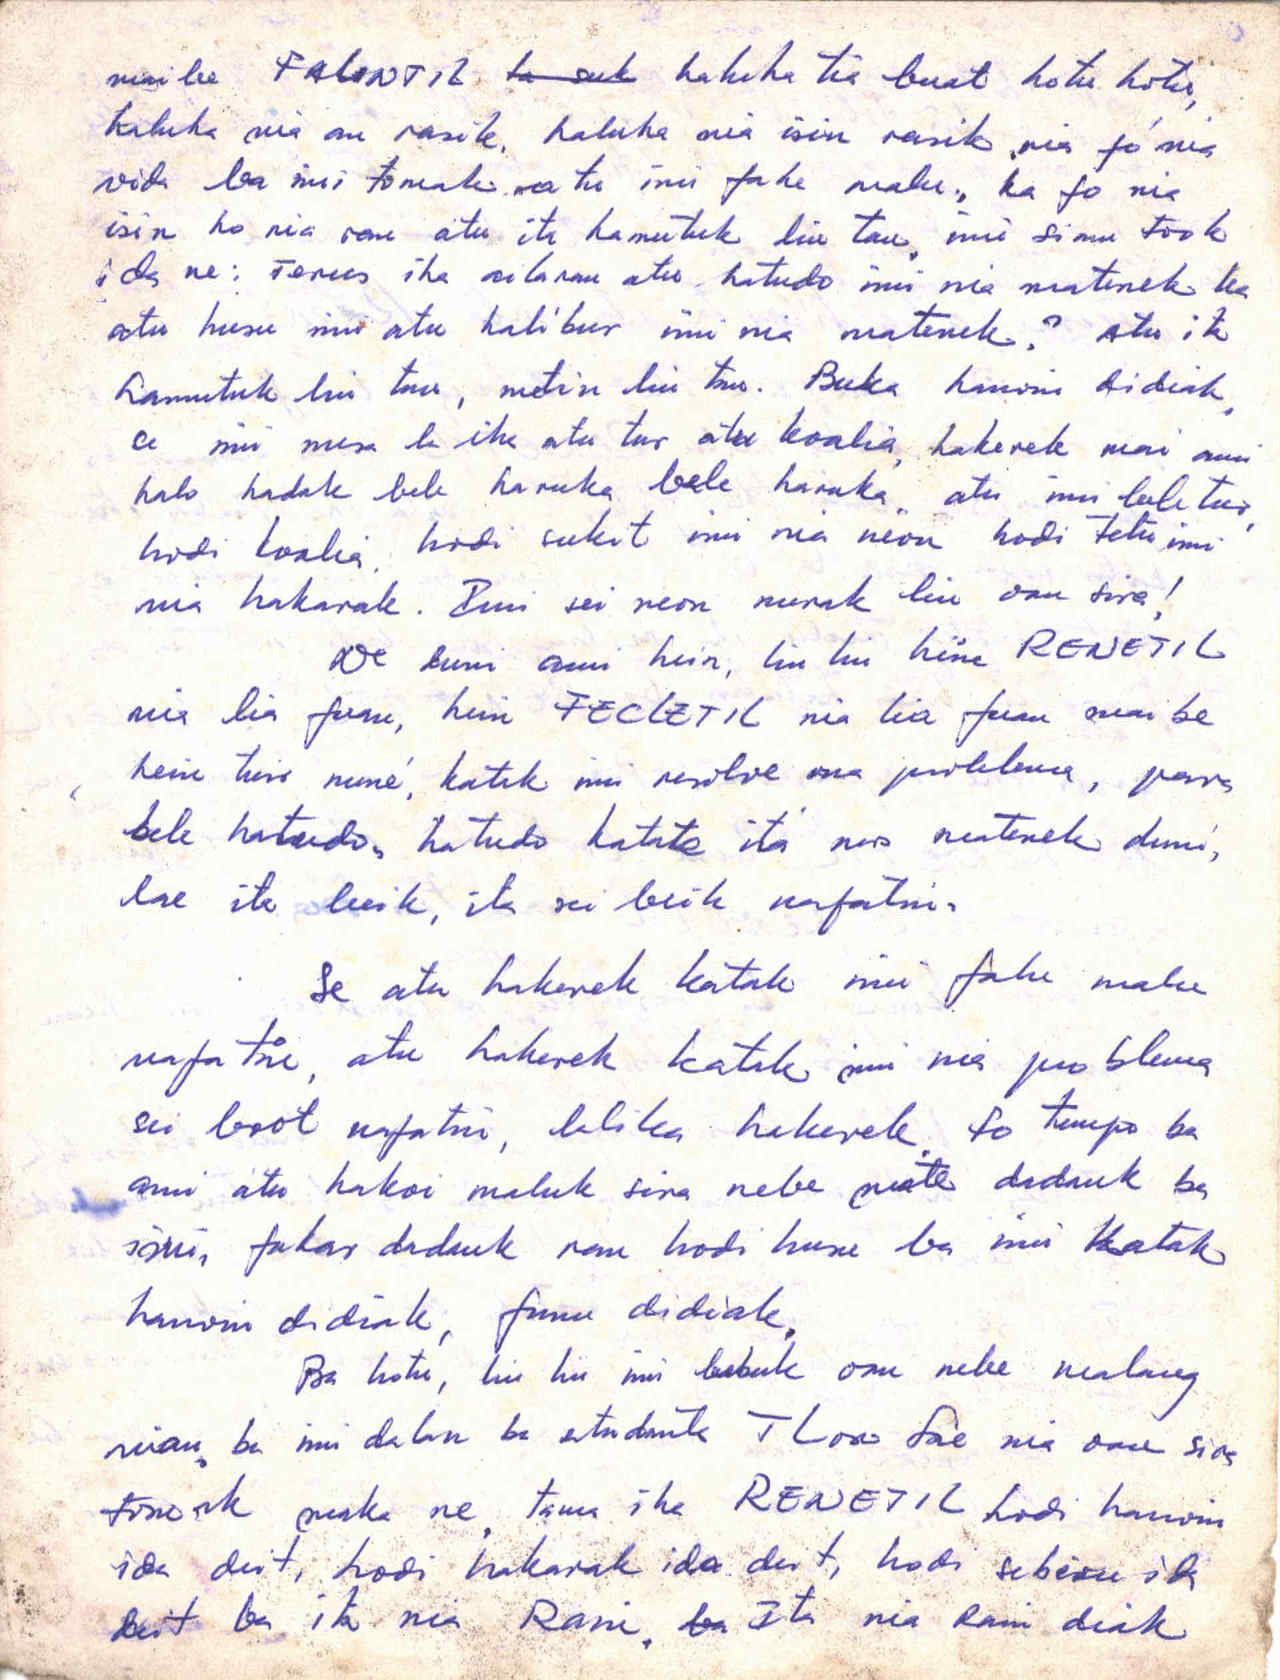 maibe FALINTIL ~~la suk~~ haluha tia buat hotu hotu,
haluha nia an rasik, haluha nia isin rasik, nia fó nia
vida ba imi tomak atu imi fahe malu, ka fo nia
isin ho nia ran atu ita hamutuk liu tau, imi simu took
ida ne: terus iha ailaran atu hatudo imi nia matenek ka
atu husu imi atu halibur imi nia matenek? Atu ita
hamutuk liu tau, metin liu tau. Buka hanoin didiak,
se imi mesa la iha atu tur atu koalia, hakerek mai ami
halo hadak bele haruka bele haruka, atu imi bele tur,
hodi koalia, hodi sukit imi nia neon hodi tetu imi
nia hakarak. Imi sei neon murak liu oan sira!
Ne duni ami hein, liu liu hein RENETIL
nia lia fuan, hein FECLETIL nia lia fuan maibe
hein tuir nuné, katak imi resolve ona problema, para
bele hatudo, hatudo katak ita mos matenek duni,
lae ita beik, ita sei beik nafatin.
Se atu hakerek katak imi fahe malu
nafatin, atu hakerek katak imi nia problema
sei boot nafatin, lalika hakerek, fo tempo ba
ami atu hakoi maluk sira nebe mate dadauk ba
imi, fakar dadauk ran hodi husu ba imi katak
hanoin didiak, funu didiak.
Ba hotu, liu liu imi oan nebe Malang
nian, ba imi dalan ba estudante TLoro Sae nia oan sira
tomak maka ne, tama iha RENETIL hodi hanoin
ida deit, hodi hakarak ida deit, hodi ida
deit ba ita nia Rain, ba Ita nia Rain diak